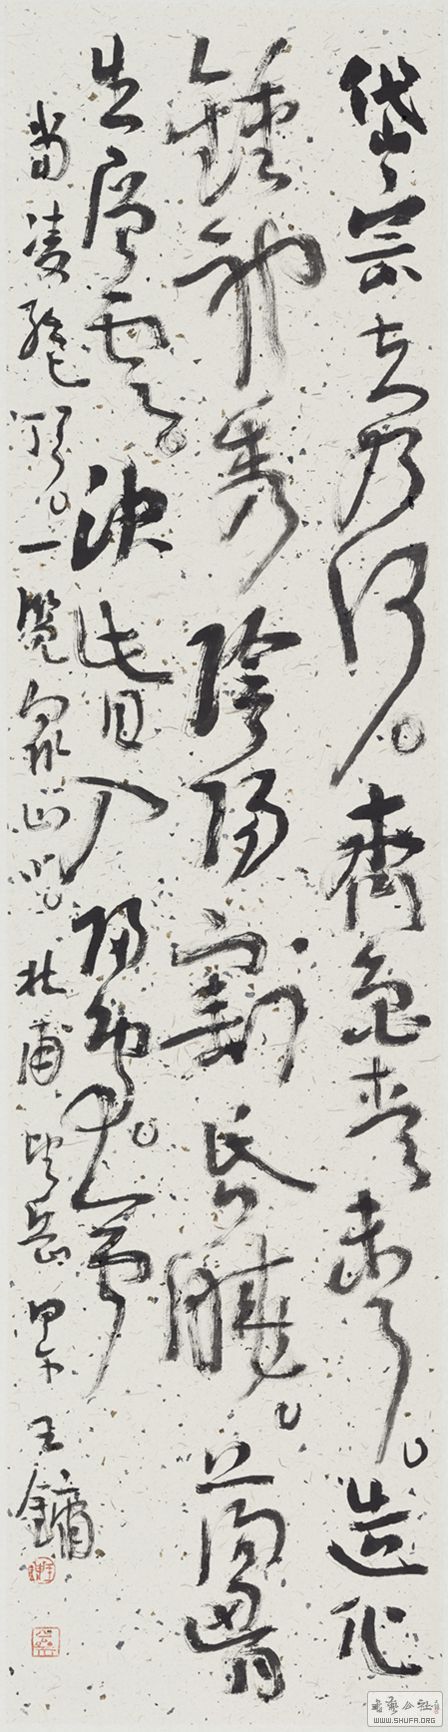 岱宗夫如何齊魯青未了造化
鍾神秀陰陽割昏曉蕩胷
生層雲決眥入歸鳥會
當凌絕頂一覽衆山小杜甫望岳甲午王鏞
WWW.SHUFA.ORG